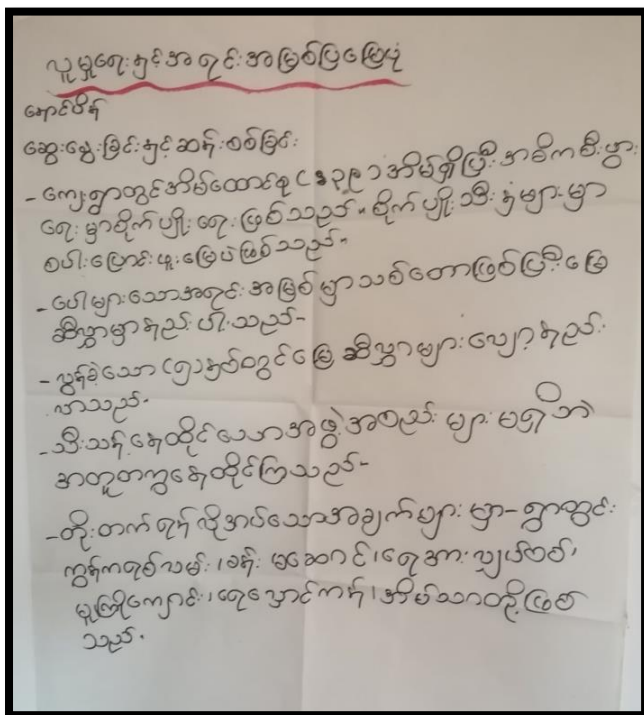 လူမှုရေးနှင့်အရင်းအမြစ်ပြမြေပုံ
နောင်ပိန်
ဆွေးနွေးခြင်းနှင့်ဆန်းစစ်ခြင်း
-ကျေးရွာတွင်အိမ်ထောင်စု(၁၃၉)အိမ်ရှိပြီးအဓိကစီးပွား
ရေးမှာစိုက်ပျိုးရေးဖြစ်သည်။စိုက်ပျိုးသီးနှံများမှာ
စပါး၊ပြောင်းဖူး၊မြေပဲဖြစ်သည်။
-ပေါများသောအရင်းအမြစ်မှာသစ်တောဖြစ်ပြီးမြေ
ဆီလွှာမှာနည်းပါးသည်-
-လွန်ခဲ့သော(၅)နှစ်တွင်မြေဆီလွှာများလျော့နည်း
လာသည်-
-သီးသန့်နေထိုင်သောအဖွဲ့အစည်းများမရှိဘဲ
အတူတကွနေထိုင်ကြသည်-
-တိုးတက်ရန်လိုအပ်သောအချက်များမှာ-ရွာတွင်း
ကွန်ကရစ်လမ်း၊ခန်းမဆောင်၊ရေအားလျှပ်စစ်၊
မူကြိုကျောင်း၊ရေလှောင်ကန်၊အိမ်သာတို့ဖြစ်
သည်-